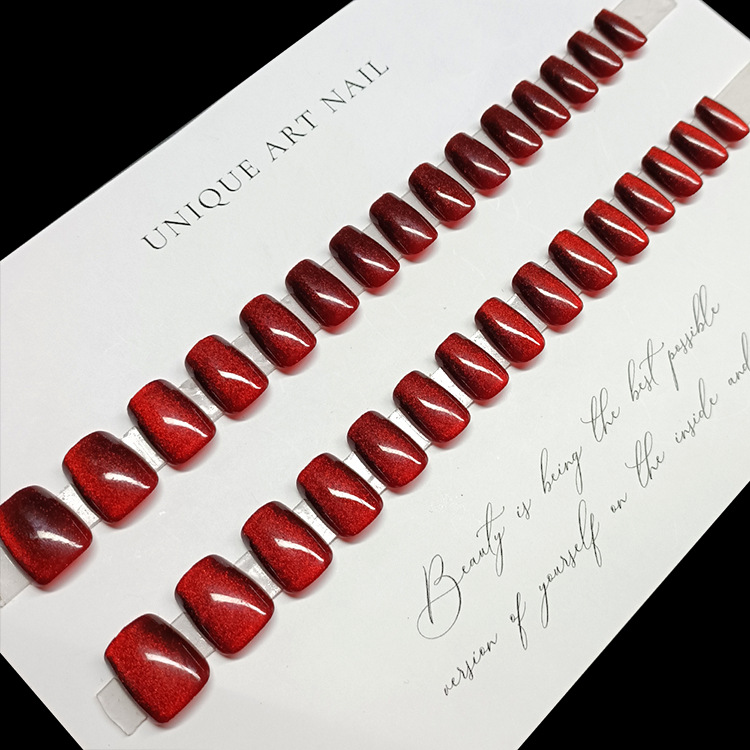 UNIQUE ART NAIL
Beauty is being the best possible
version of yourself on the inside and